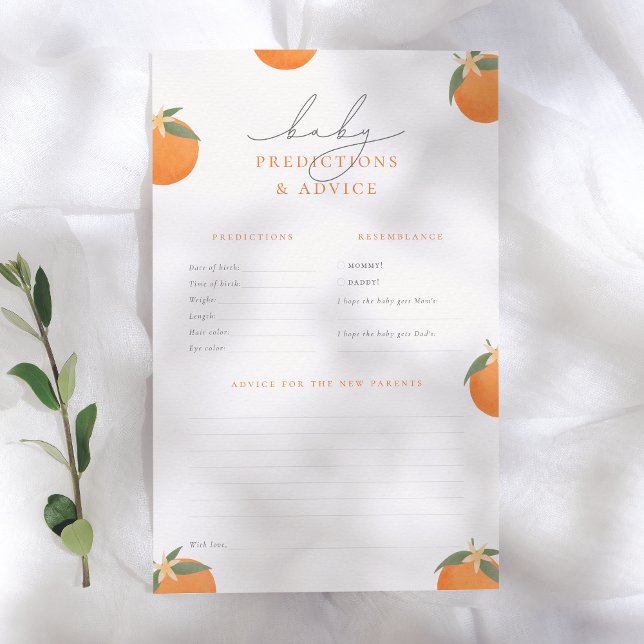 baby
PREDICTIONS
& ADVICE
PREDICTIONS
Date of birth:
Time of birth:
Weight:
Length:
Hair color:
Eye color:
RESEMBLANCE
MOMMY!
DADDY!
I hope the baby gets Mom's:
I hope the baby gets Dad's:
ADVICE FOR THE NEW PARENTS
With love,